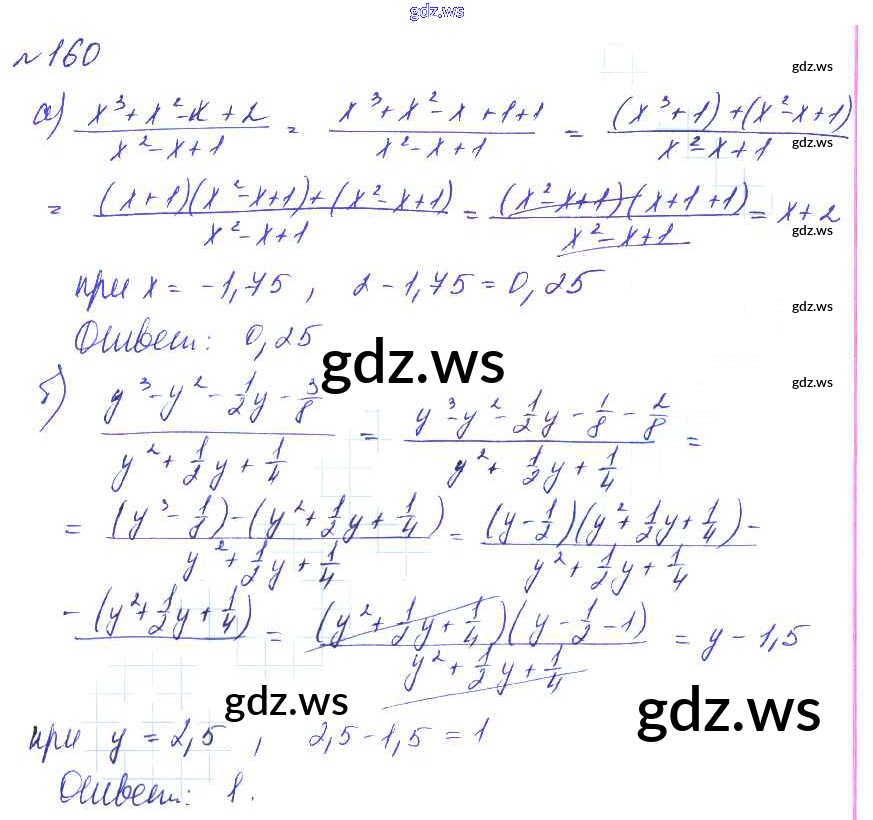 gdz.ws
№160
gdz.ws
а) (x³+x²-x+2)/(x²-x+1) = (x³+x²-x+1+1)/(x²-x+1) = ((x³+1)+(x²-x+1))/(x²-x+1)
gdz.ws
= ((x+1)(x²-x+1)+(x²-x+1))/(x²-x+1) = ((x²-x+1)(x+1+1))/(x²-x+1) = x+2
gdz.ws
при x = -1,75 , 2-1,75=0,25
gdz.ws
Ответ: 0,25
gdz.ws
gdz.ws
б) (y³-y²-1/2y-3/8)/(y²+1/2y+1/4) = (y³-y²-1/2y-1/8-2/8)/(y²+1/2y+1/4) =
= ((y³-1/8)-(y²+1/2y+1/4))/(y²+1/2y+1/4) = ((y-1/2)(y²+1/2y+1/4)-)/(y²+1/2y+1/4)
-(y²+1/2y+1/4) = ((y²+1/2y+1/4)(y-1/2-1))/(y²+1/2y+1/4) = y-1,5
gdz.ws
gdz.ws
при y=2,5 , 2,5-1,5=1
Ответ: 1.